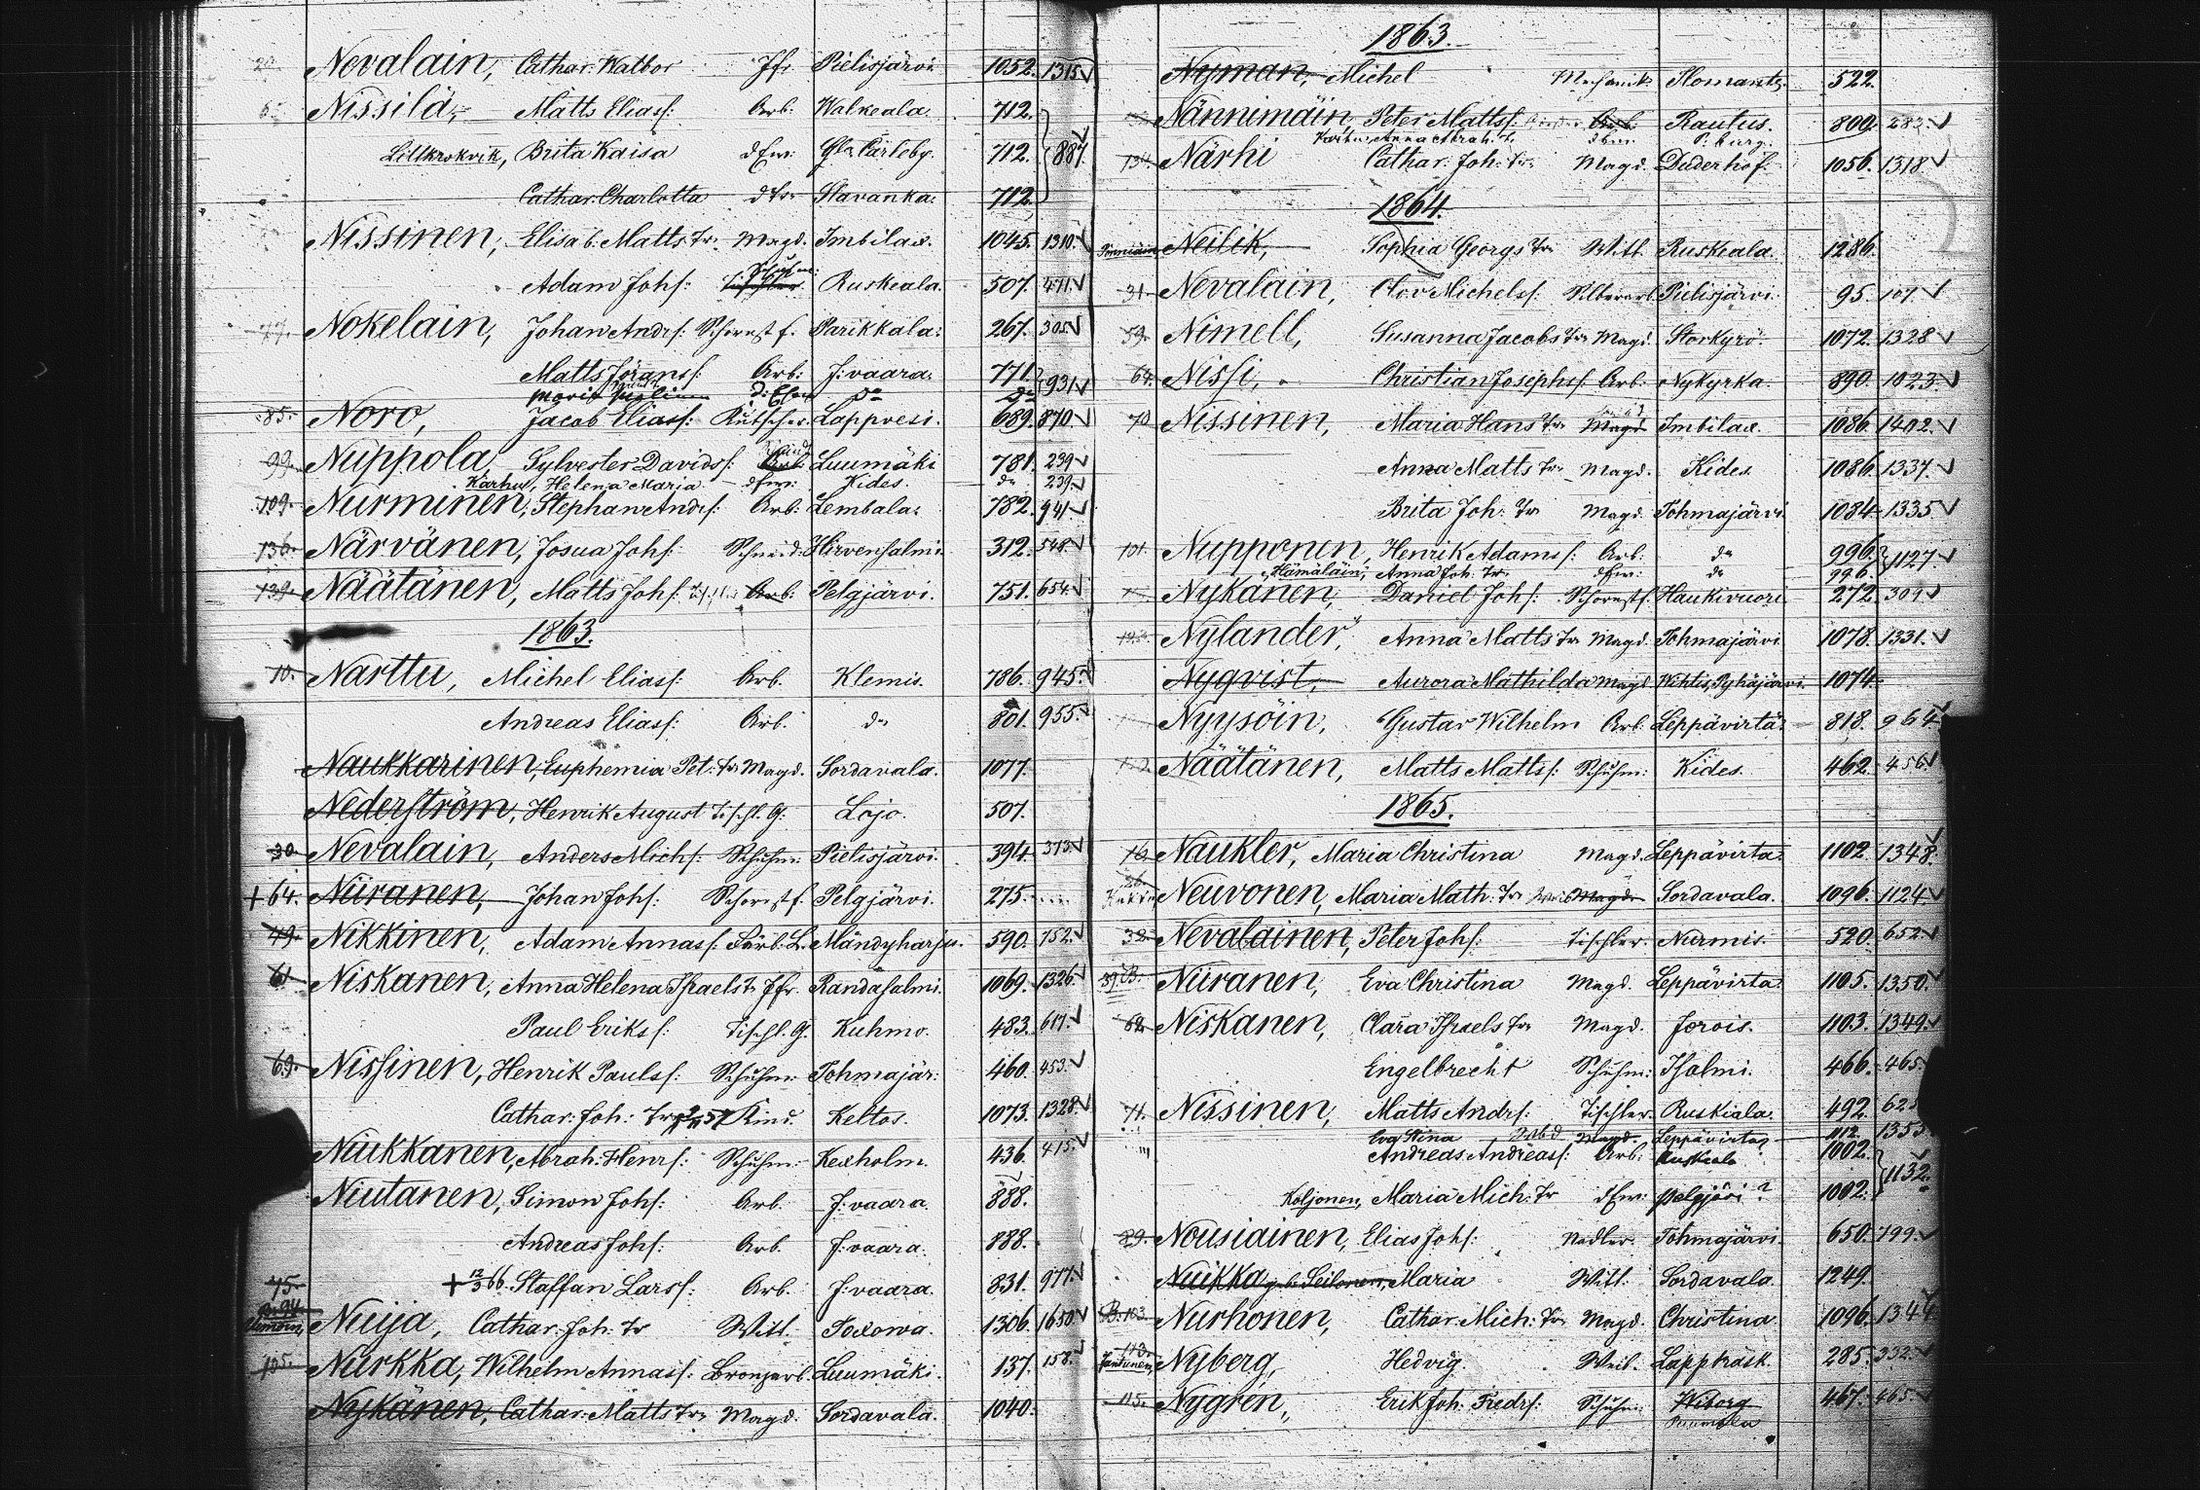 Nevalain, Cathar. Walbor Jfr Pielisjärvi 1052. 1315 ✓
Nissilä, Matts Eliass: Arb: Walkeala. 712.
Lillkrokvik, Brita Kaisa dEw: Gla Carleby. 712. 887. ✓
Cathar. Charlotta dtr Slavanka: 712.
Nissinen, Elisab. Matts Tr. Magd. Imbilax. 1045. 1310. ✓
Adam Johs: Schuhm: Ruskeala. 507. 471 ✓
47. Nokelain, Johan Andrs: Schornst f. Parikkala: 267. 305 ✓
Matts Jörans: Arb: J: vaara. 771. 931 ✓
d: Efrau do do
85. Noro, Jacob Eliass: Kutscher. Lappvesi. 689. 870. ✓
99. Nuppola, Sylvester Davids: Arb: Luumäki 781. 239 ✓
Karhu, Helena Maria dEw: Kides. do 239. ✓
109. Nurminen, Stephan Andrs: Arb: Lembala: 782. 941. ✓
136. Närvänen, Josua Johs: Schneid: Hirvensalmi. 312. 548. ✓
139. Näätänen, Matts Johs: Arb: Pelgjärvi. 751. 654 ✓
1863.
10. Narttu, Michel Eliass: Arb. Klemis. 786. 945. ✓
Andreas Eliass: Arb. do 801. 955. ✓
Naukkarinen, Euphemia Pet: Tr Magd. Sordavala. 1077.
Nederström, Henrik August Tischl. G. Lojo. 507.
30. Nevalain, Anders Michs: Schuhm: Pielisjärvi. 394. 373 ✓
+ 64. Niiranen, Johan Johs: Schornst f. Pelgjärvi. 275. ....
49. Nikkinen, Adam Annass: Färb. L. Mändyharju. 590. 752. ✓
61. Niskanen, Anna Helena Israelst. Jfr. Randasalmi. 1069. 1326. ✓
Paul Eriks: Tischl. G. Kuhmo. 483. 617. ✓
69. Nissinen, Henrik Pauls: Schuhm: Tohmajär: 460. 453. ✓
Cathar: Joh: Tr Kind. Keltos. 1073. 1328. ✓
Niukkanen, Abrah: Henrs: Schuhm: Kexholm. 436. 415. ✓
Niutanen, Simon Johs: Arb. J: vaara. 888.
Andreas Johs: Arb. J: vaara. 888.
75. + 12/3 66. Staffan Larss: Arb. J: vaara. 831. 977. ✓
Nuija, Cathar. Joh: Tr Witt. Toxowa. 1306. 1650. ✓
105. Nurkka, Wilhelm Annass: Bronzarb. Luumäki. 137. 158. ✓
Nykänen, Cathar. Matts Tr. Magd. Sordavala. 1040.
1863.
Nyman, Michel Mechanik. Ilomants. 522.
Nännimäin, Peter Mattss: Arb. Rautus. 809. 283. ✓
Anna Abrah: T. dEw. P: burg.
134. Närhi Cathar: Joh: Tr. Magd. Duderhof. 1056. 1318 ✓
1864.
Neilik, Sophia Georgs Tr Witt. Ruskeala. 1286.
31. Nevalain, Olov Michelss: Silberarb. Pielisjärvi. 95. 107. ✓
59. Nimell, Susanna Jacobs Tr. Magd. Storkyrö. 1072. 1328 ✓
64. Nissi, Christian Josephss: Arb: Nykyrka. 890. 1023. ✓
70. Nissinen, Maria Hans Tr. Magd Imbilax. 1086. 1402. ✓
Anna Matts Tr. Magd. Kides. 1086. 1337. ✓
Brita Joh: Tr Magd. Tohmajärvi. 1084. 1335 ✓
101. Nupponen, Henrik Adamss: Arb: do 996. 1127. ✓
Hämäläin, Anna Joh: Tr. dEw: do 996.
Nykänen, Daniel Johs: Schornst f. Haukivuori. 272. 309. ✓
Nylander, Anna Matts Tr Magd. Tohmajärvi 1078. 1331. ✓
Nyqvist, Aurora Mathilda Magd Wihtis, Pyhäjärvi. 1074.
Nyysöin, Gustav Wilhelm Arb: Leppävirta. 818. 964 ✓
Näätänen, Matts Mattss: Schuhm: Kides. 462. 456. ✓
1865.
16. Naukler, Maria Christina Magd. Leppävirta. 1102. 1348. ✓
26. Neuvonen, Maria Math: Tr Magd. Sordavala. 1096. 1124 ✓
32. Nevalainen, Peter Johs: Tischler. Nurmis. 520. 652 ✓
39. B. Niiranen, Eva Christina Magd. Leppävirta. 1105. 1350. ✓
62. Niskanen, Clara Israels Tr Magd. Jorois. 1103. 1349. ✓
Engelbrecht Schuhm: Isalmi. 466. 465.
71. Nissinen, Matts Andrs: Tischler. Ruskiala. 492. 625
Eva Stina Magd. Leppävirta 1112. 1353.
Andreas Andreass: Arb: Ruskeala 1002. 1132.
Koljonen, Maria Mich: Tr dEw: Pelgjärvi? 1002.
89. Nousiainen, Elias Johs: Nadler. Tohmajärvi. 650. 799. ✓
Nuikka geb. Seilonen, Maria Witt: Sordavala. 1249.
B. 103. Nurhonen, Cathar: Mich: Tr. Magd. Christina. 1096. 1344.
Nyberg, Hedvig. Weib. Lappträsk. 285. 332. ✓
115. Nygrén, Erik Joh: Fredrs: Schuhm: Wiborg 467. 465 ✓